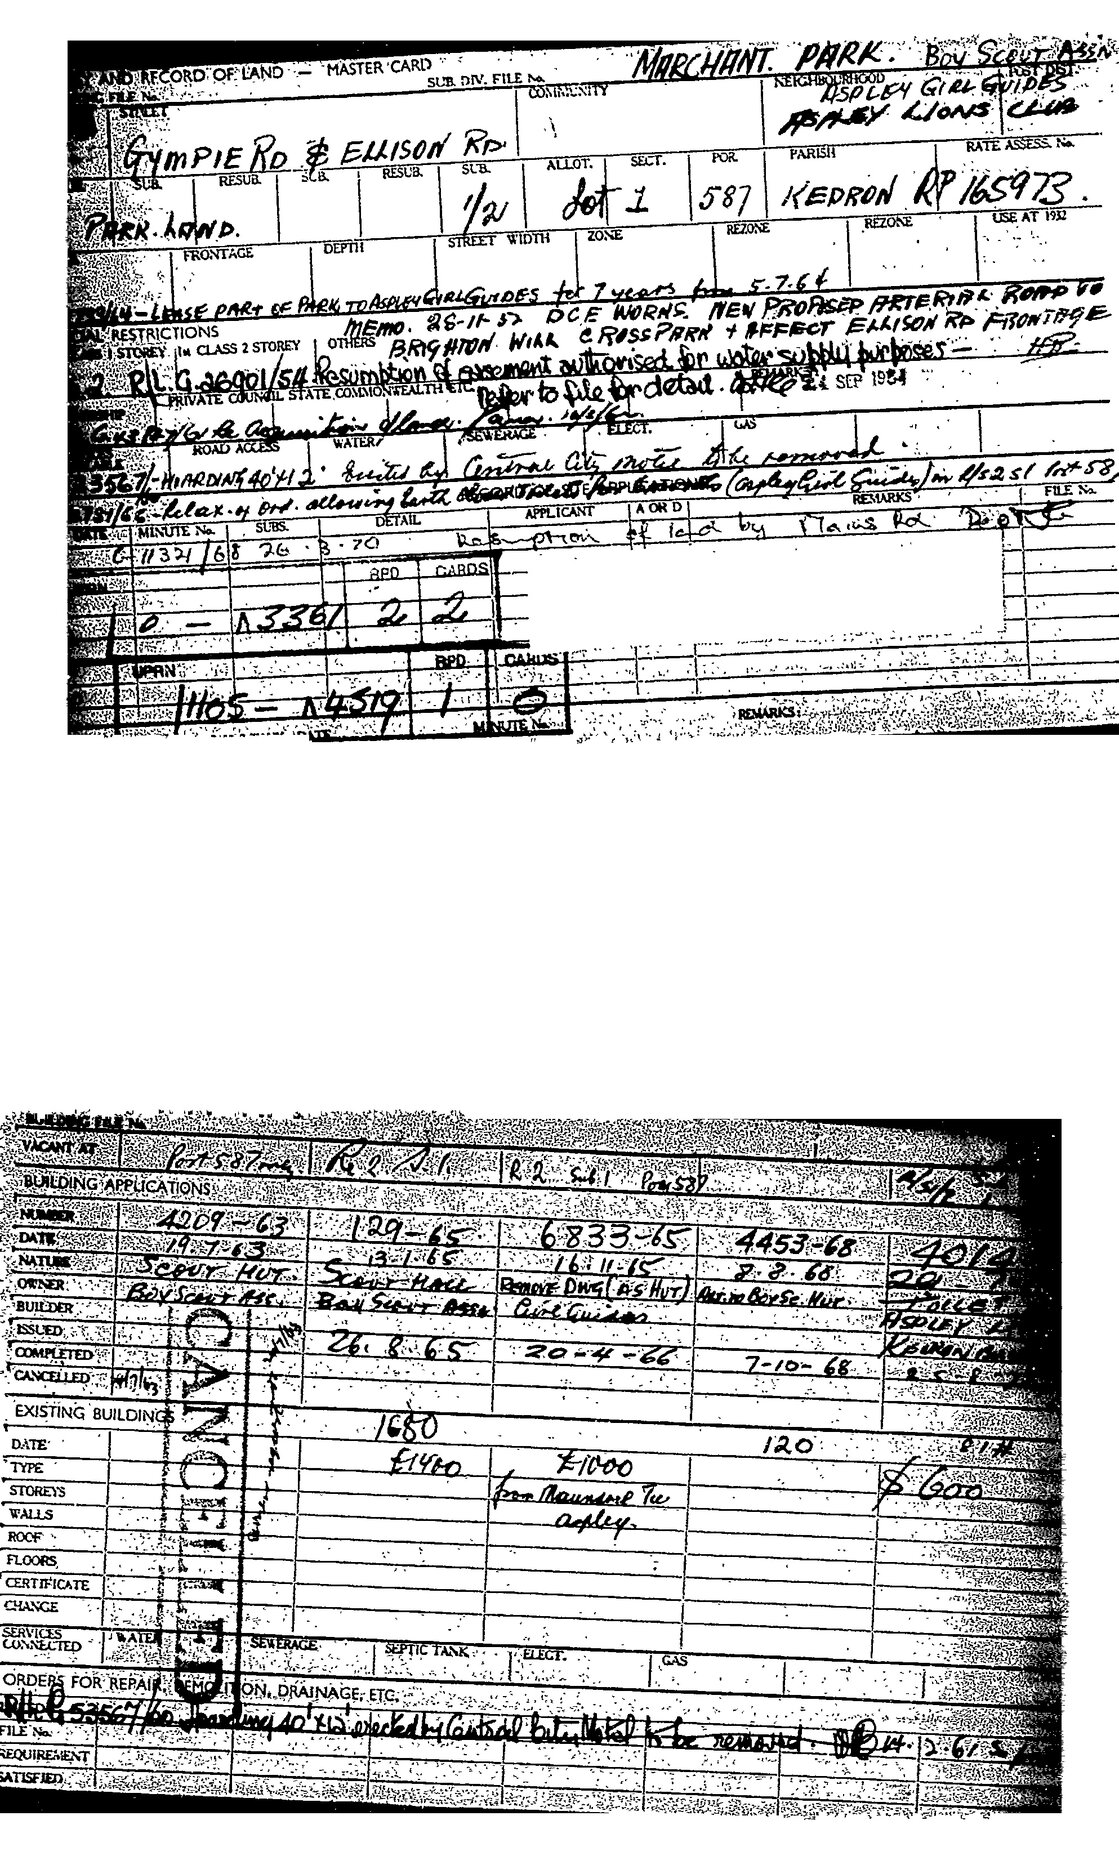 Y AND RECORD OF LAND — MASTER CARD SUB. DIV. FILE No. MARCHANT. PARK. BOY SCOUT ASSN
FILE No. COMMUNITY NEIGHBOURHOOD POST DIST.
STREET ASPLEY GIRL GUIDES
ASPLEY LIONS CLUB
GYMPIE RD & ELLISON RD
SUB. RESUB. SUB. RESUB. SUB. ALLOT. SECT. POR. PARISH RATE ASSESS. No.
PARK. LAND. 1/2 Lot 1 587 KEDRON RP 165973.
FRONTAGE DEPTH STREET WIDTH ZONE REZONE REZONE USE AT 1932
LEASE PART OF PARK TO ASPLEY GIRL GUIDES for 7 years from 5.7.64
RESTRICTIONS MEMO. 28-11-52 DCE WORNS. NEW PROPOSED ARTERIAL ROAD TO
1 STOREY In CLASS 2 STOREY OTHERS BRIGHTON WILL CROSS PARK + AFFECT ELLISON RD FRONTAGE
2. R/L.G. 26901/54. Resumption of easement authorised for water supply purposes —
PRIVATE COUNCIL STATE, COMMONWEALTH ETC. refer to file for detail. REMARKS 24 SEP 1954
ROAD ACCESS WATER SEWERAGE ELECT. GAS
53567/60 - HOARDING 40'x12' Erected by Central City Motel to be removed
Relax. of Ord. allowing Earth (Aspley Girl Guides) in
DATE MINUTE No. SUBS. DETAIL APPLICANT A OR D REMARKS FILE No.
G 11321/68 26.3.70 Resumption of land by Mains Rd Dept
BPD CARDS
0 — A3361 2 2
UPRN BPD CARDS
1105 — A4519 1 0
MINUTE No. REMARKS
BUILDING FILE No.
VACANT AT Por 587 Re 2. S.1. R 2 Sub 1 Por 587
BUILDING APPLICATIONS
NUMBER 4209-63 129-65 6833-65 4453-68 4014
DATE 19.7.63 13.1.65 16.11.65 8.8.68 20
NATURE SCOUT HUT. SCOUT HALL REMOVE DWG (AS HUT) ADD. TO BOY SC. HUT. TOILET
OWNER BOY SCOUT ASS. BOY SCOUT ASSN Girl Guides ASPLEY
BUILDER
ISSUED
COMPLETED 26.8.65 20-4-66 7-10-68
CANCELLED
CANCELLED
EXISTING BUILDINGS 1680 120
DATE £1400 £1000 $600
TYPE
STOREYS from Maundrell Tce
WALLS Aspley.
ROOF
FLOORS
CERTIFICATE
CHANGE
SERVICES CONNECTED WATER SEWERAGE SEPTIC TANK ELECT. GAS
ORDERS FOR REPAIR, DEMOLITION, DRAINAGE, ETC.
53567/60 Hoarding 40'x12' erected by Central City Motel to be removed. 14.2.61
FILE No.
REQUIREMENT
SATISFIED